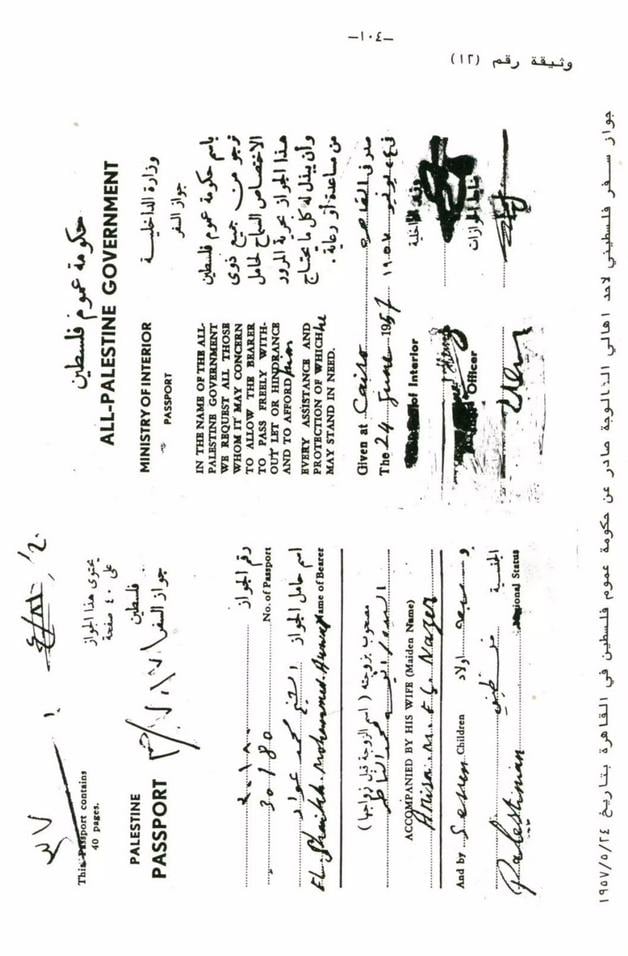 -١٠٤-
وثيقة رقم (١٢)
This Passport contains
40 pages.
يحتوى هذا الجواز
على ٤٠ صفحة
PALESTINE
PASSPORT
فلسطين
جواز السفر
رقم الجواز
30180
No. of Passport
اسم حامل الجواز الشيخ محمد عواد
El. Shaikh. Mohammed. Awwad
Name of Bearer
مصحوب بزوجته (اسم الزوجة قبل زواجها)
ACCOMPANIED BY HIS WIFE (Maiden Name)
Anisa M. El. Nazer
And by Seven Children
و سبعة اولاد
الجنسية فلسطيني
Palestinian
National Status
حكومة عموم فلسطين
ALL-PALESTINE GOVERNMENT
MINISTRY OF INTERIOR
وزارة الداخلية
PASSPORT
جواز السفر
IN THE NAME OF THE ALL-
PALESTINE GOVERNMENT
WE REQUEST ALL THOSE
WHOM IT MAY CONCERN
TO ALLOW THE BEARER
TO PASS FREELY WITH-
OUT LET OR HINDRANCE
AND TO AFFORD him
EVERY ASSISTANCE AND
PROTECTION OF WHICH he
MAY STAND IN NEED.
باسم حكومة عموم فلسطين
نرجو من جميع ذوى
الاختصاص السماح لحامل
هذا الجواز بحرية المرور
وأن يبذل له كل ما يحتاج
من مساعدة أو رعاية.
Given at Cairo
The 24 June 1957
صدر فى القاهرة
of Interior
Officer
الداخلية
ضابط الجوازات
جواز سفر فلسطيني لاحد اهالي الفالوجة صادر عن حكومة عموم فلسطين في القاهرة بتاريخ ١٩٥٧/٥/٢٤